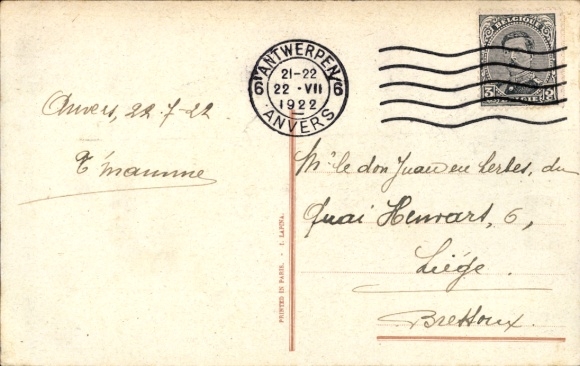 ANTWERPEN
6 21-22 6
22 · VII
1922
ANVERS
BELGIQUE
3
BELGIE
Anvers, 22.7-22
T' mamme
Mr le don Juan en herbes, du
Quai Henvart, 6,
Liège.
Bressoux.
PRINTED IN PARIS. - I. LAPINA.